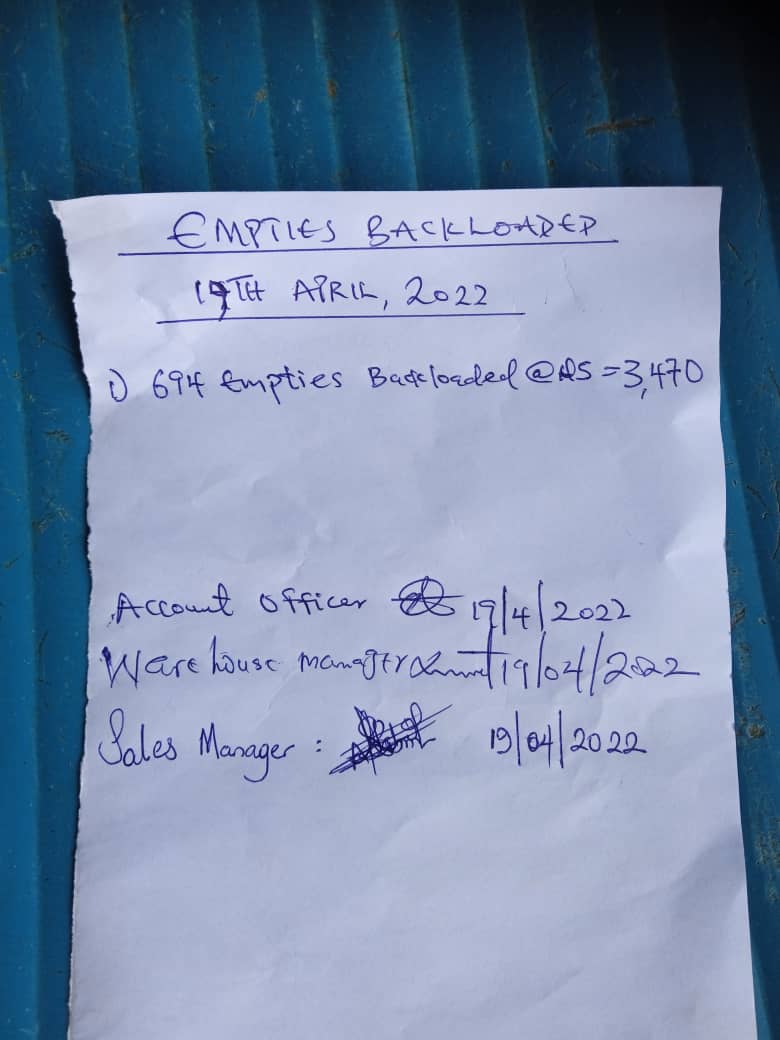 EMPTIES BACKLOADED
19TH APRIL, 2022
1) 694 Empties Backloaded @ ₦5 = 3,470
Account Officer 19/4/2022
Warehouse manager 19/04/2022
Sales Manager : 19/04/2022